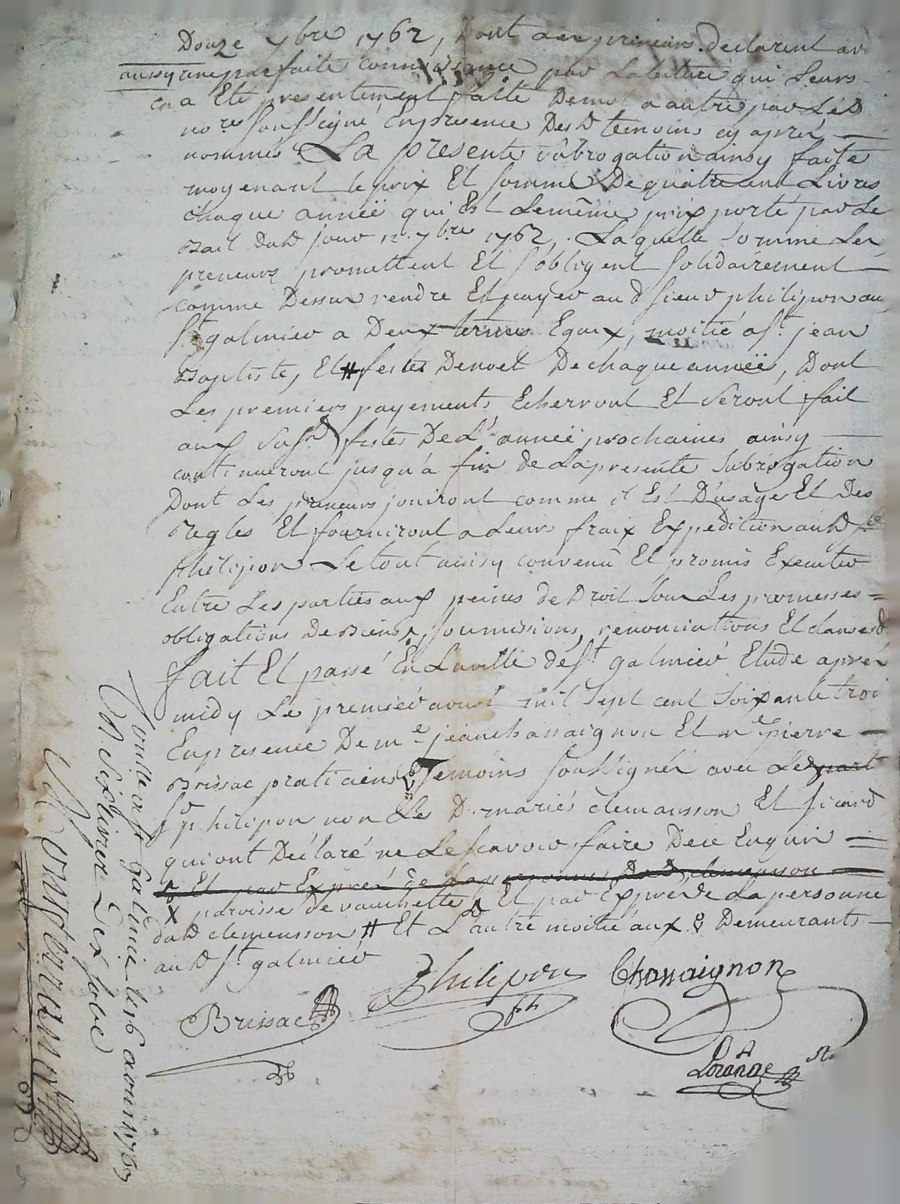 Douze 7bre 1762, Dont les preneurs declarent avoir
aussy une parfaite connoissance par La lecture qui Leurs
en a Eté presentement faitte Demot a autre par Le d
nore soussigné En presence Des d temoins cy apres
nommés. La presente subrogation ainsy faite
moyenant le prix Et somme De quatre cent Livres
chaque année qui Est Le même prix porté par Le
Bail du d jour 12 7bre 1762, Laquelle somme Les
preneurs promettent Et s'obligent solidairement
comme Dessus rendre Et payer au d sieur philipon au
St galmier a Deux termes Egaux, moitié a St jean
Baptiste, Et # festes Denoel De chaque année, Dont
Les premiers payements Echerront Et seront fait
aux susd festes De L'année prochaines ainsy
continueront jusqu'à fin de La presente subrogation
Dont Les preneurs jouiront comme il Est D'usage Et Des
regles Et fourniront a Leurs fraix Expedition au d sr
philipon Le tout ainsy convenu Et promis Executer
Entre Les parties aux peines de Droit sous Les promesses
obligations De Biens, soumissions, renonciations Et clauses
fait Et passé En La ville de St galmier Etude aprés
midy Le premier avril mil sept cent soixante troi
En presence De me jean chassaignon Et me pierre
Brissac praticiens temoins soussignés avec Le
sr philipon non Les D. mariés clemansson Et sicard
qui ont Déclaré ne Le scavoir faire De ce Enquis
Et par Exprés
x paroisse de vauchette, Et par Exprés de La personne
dud clemensson # Et L'autre moitié aux Demeurants
au d St galmier
Brissac Philipon Chassaignon
Controllé a St Galmier le 16 avril 1763